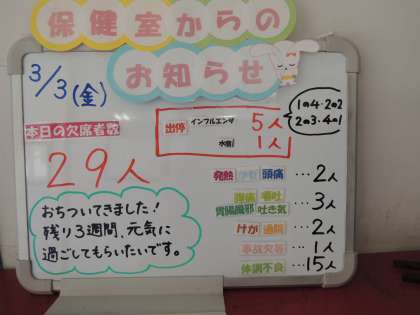 保健室からの
お知らせ
3/3(金)
本日の欠席者数
29人
出停 インフルエンザ 5人
水痘 1人
1の4・2の2
2の3・4の1
発熱 頭痛 …2人
腹痛 嘔吐
胃腸風邪 吐き気 …3人
けが 通院 …2人
事故欠等 …1人
体調不良 …15人
おちついてきました!
残り3週間、元気に
過ごしてもらいたいです。